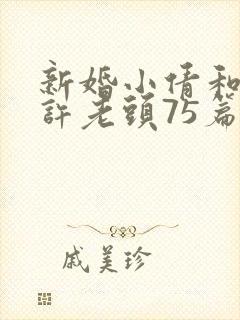 新婚小倩和
許老頭75篇
戚美珍